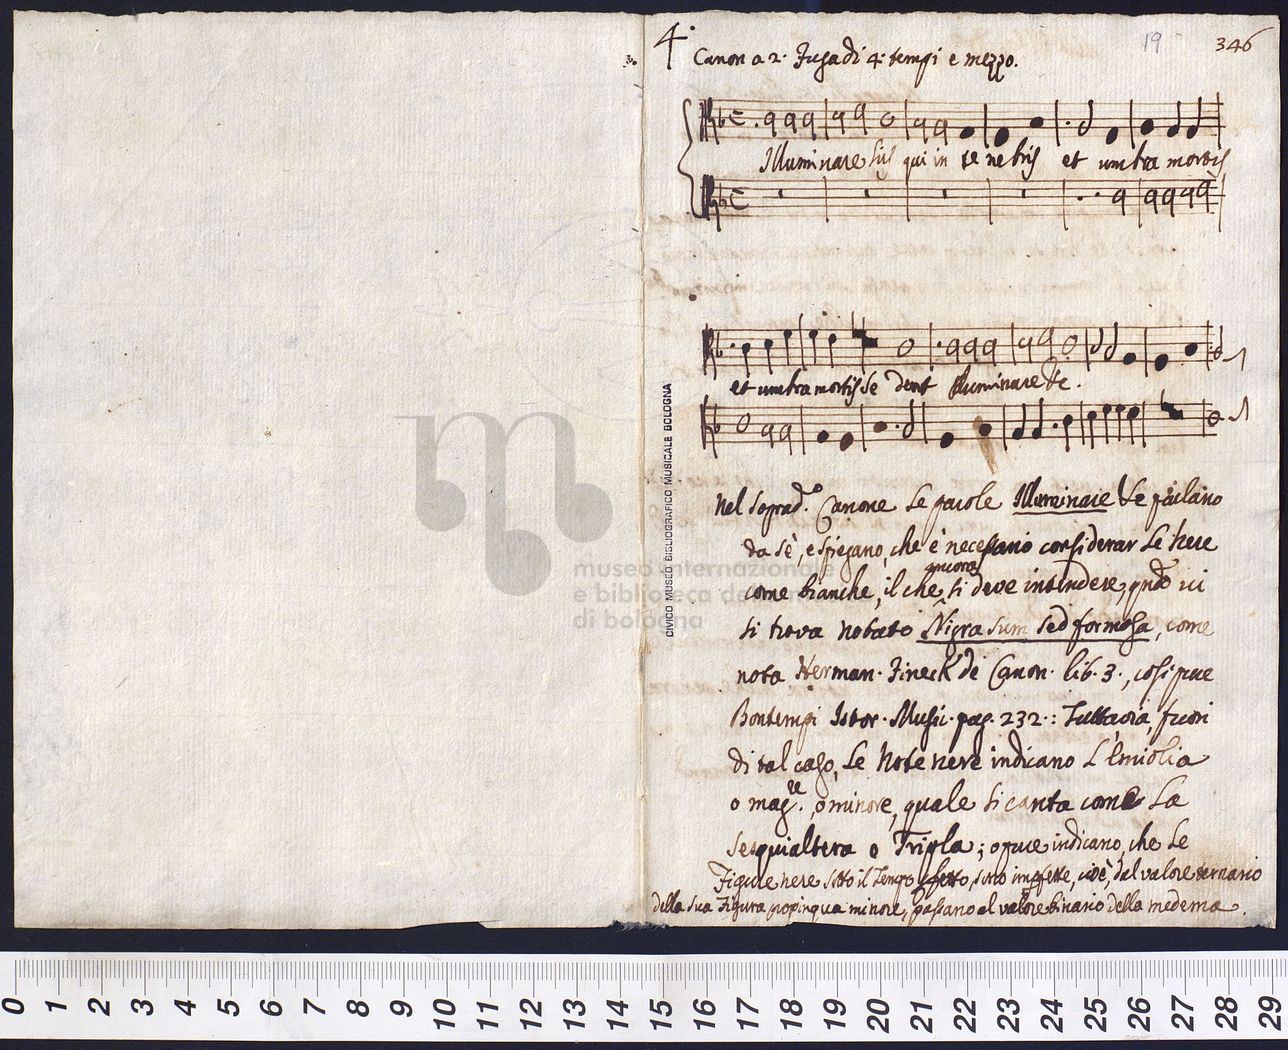 4.
19
346
Canon a 2. Fuga di 4. tempi e mezzo.
Illuminare his qui in te nebris et umbra mortis
et umbra mortis se dent Illuminare &c.
nel soprad.o Canone le parole Illuminare &c parlano
da sè, e spiegano, che è necessario considerar le nere
come bianche, il che ancora si deve intendere, qndo vi
si trova notato Nigra sum sed formosa, come
nota Herman. Finck de Canon. lib. 3., cosi pure
Bontempi Istor. Music. pag. 232.: Tuttavia, fuori
di tal caso, le Note nere indicano L'Emiolia
o mag.re, o minore, quale si canta come La
sesquialtera o Tripla; opure indicano, che Le
Figure nere sotto il Tempo pfetto, sono impfette, cioè, dal valore ternario
della sua Figura propinqua minore, passano al valore binario della medema.
CIVICO MUSEO BIBLIOGRAFICO MUSICALE BOLOGNA
museo internazionale
e biblioteca della musica
di bologna
0 1 2 3 4 5 6 7 8 9 10 11 12 13 14 15 16 17 18 19 20 21 22 23 24 25 26 27 28 29